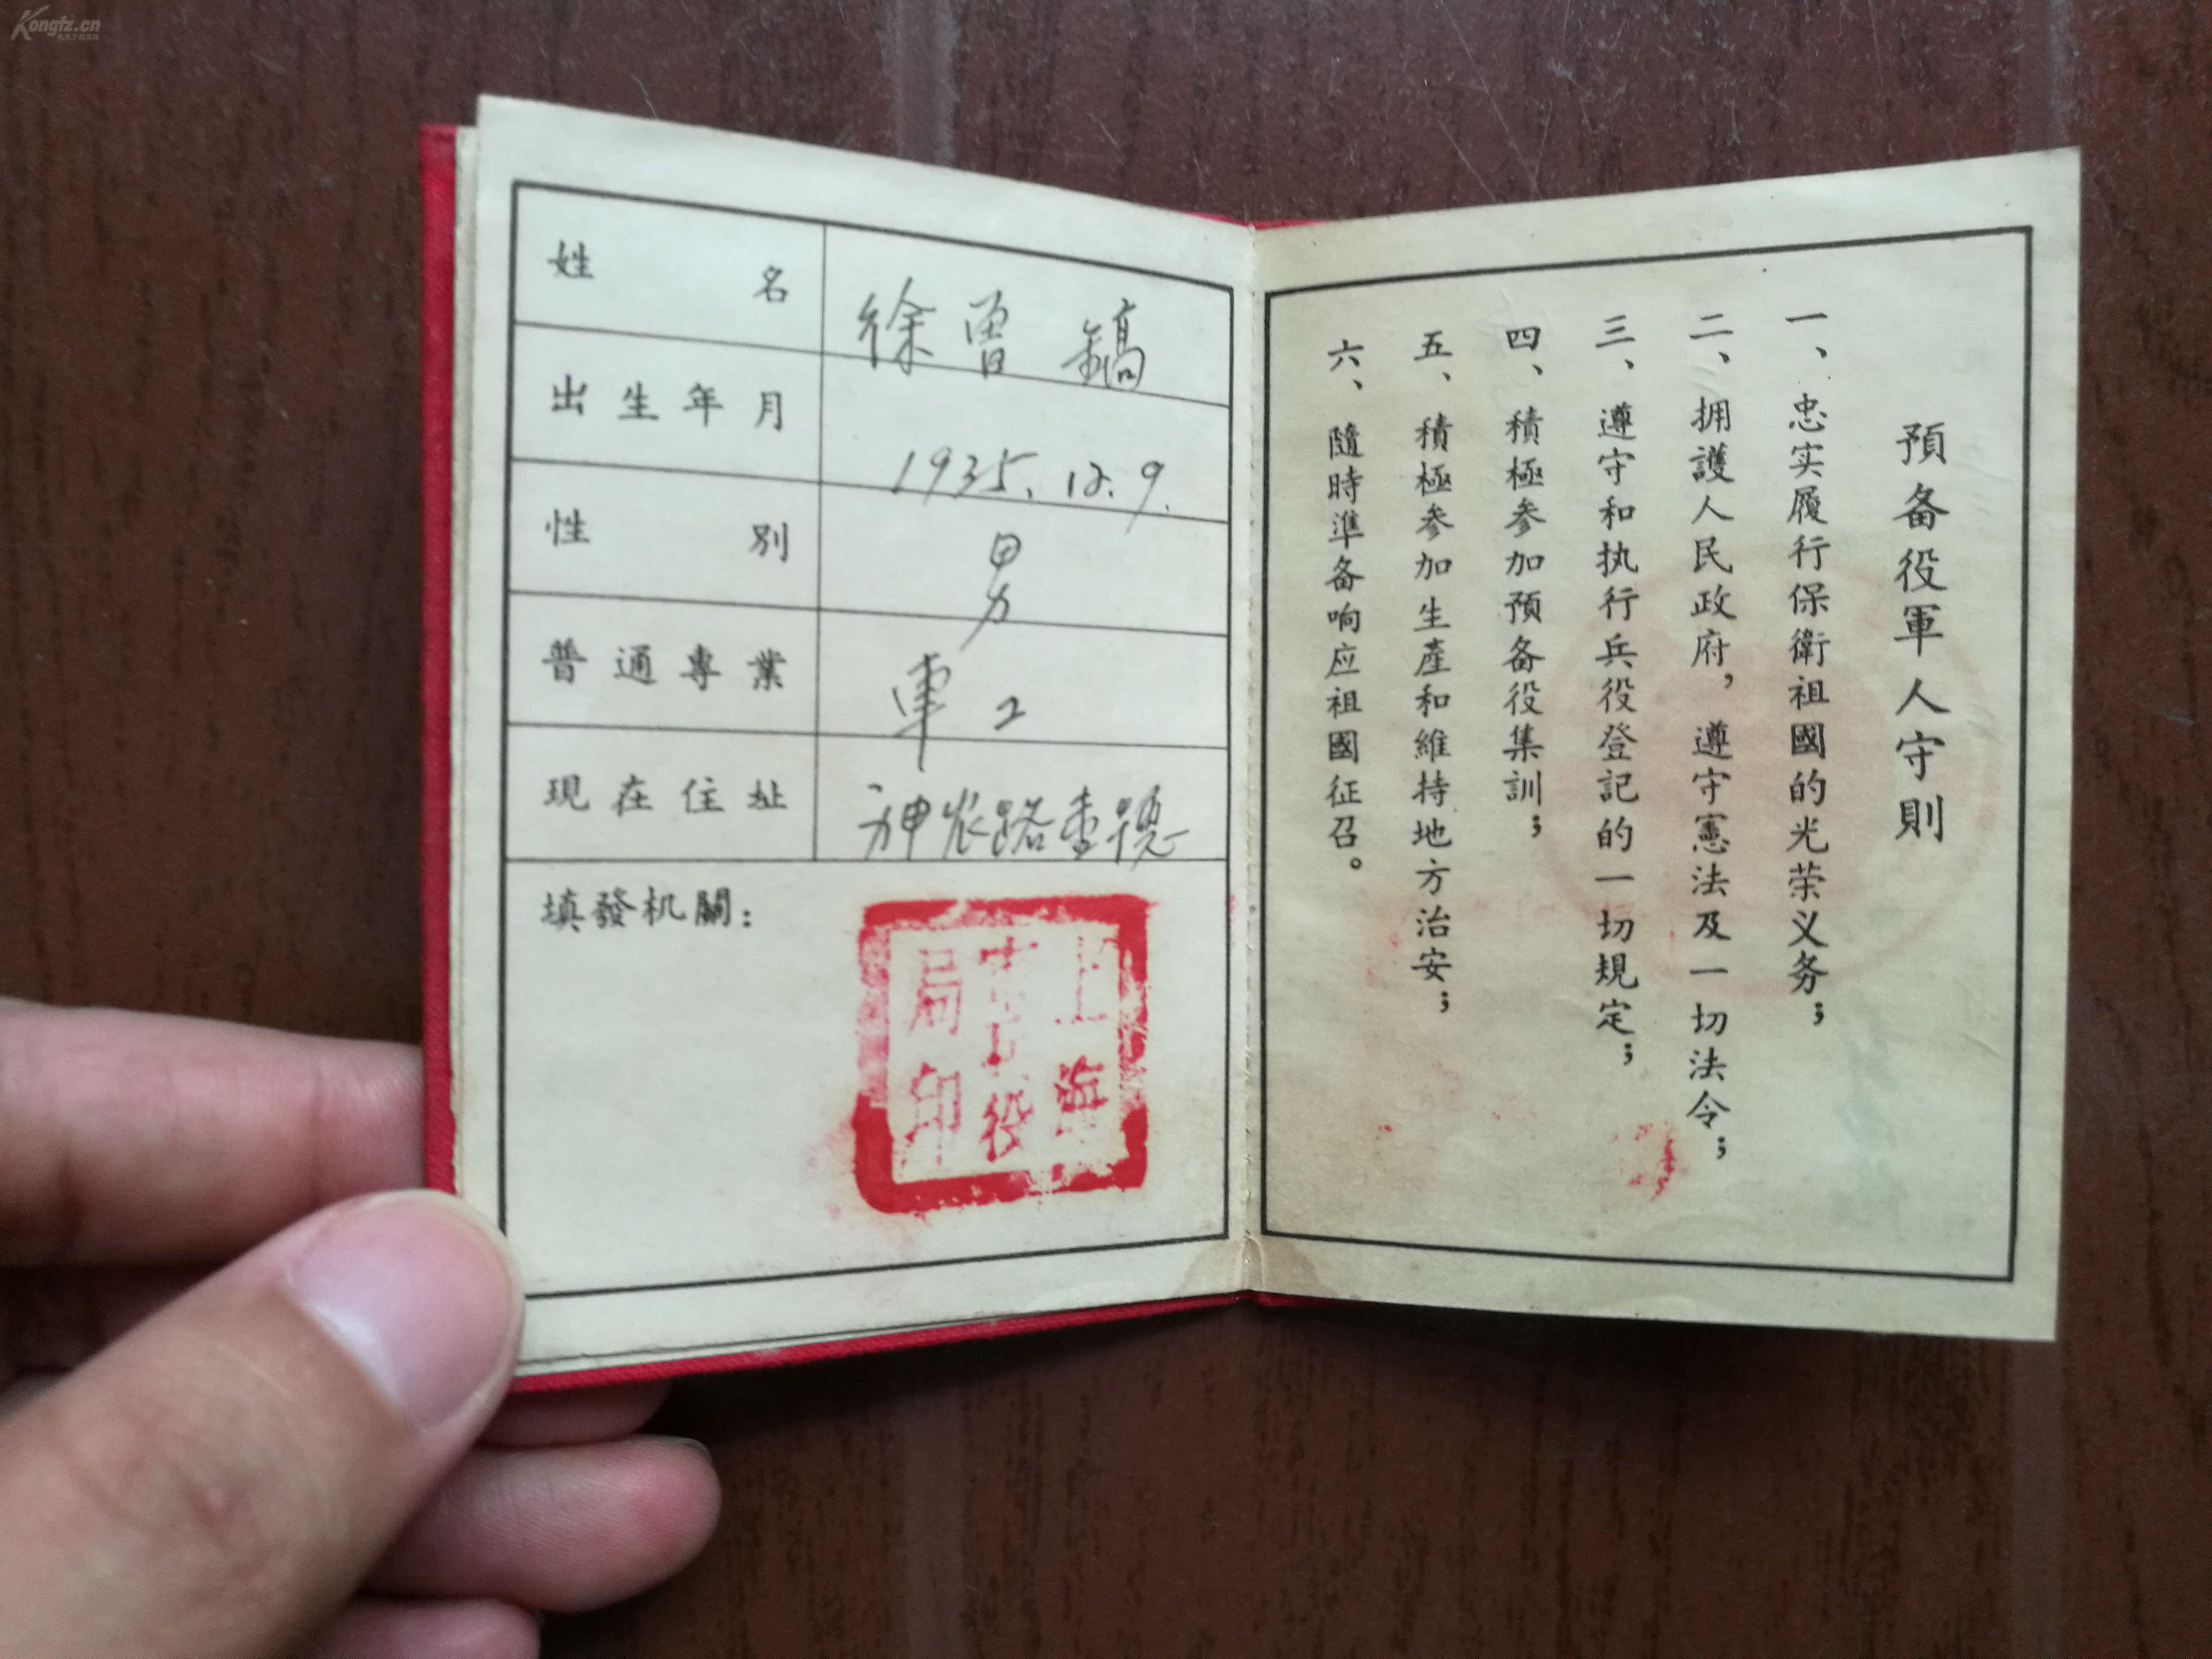 Kongfz.cn
姓名 徐曾鎬
出生年月 1935.12.9.
性別 男
普通專業 車工
現在住址 神农路
填發机關：
上海
市兵役
局印
預备役軍人守則
一、忠实履行保衛祖國的光荣义务；
二、拥護人民政府，遵守憲法及一切法令；
三、遵守和执行兵役登記的一切規定；
四、積極参加預备役集訓；
五、積極参加生產和維持地方治安；
六、隨時準备响应祖國征召。